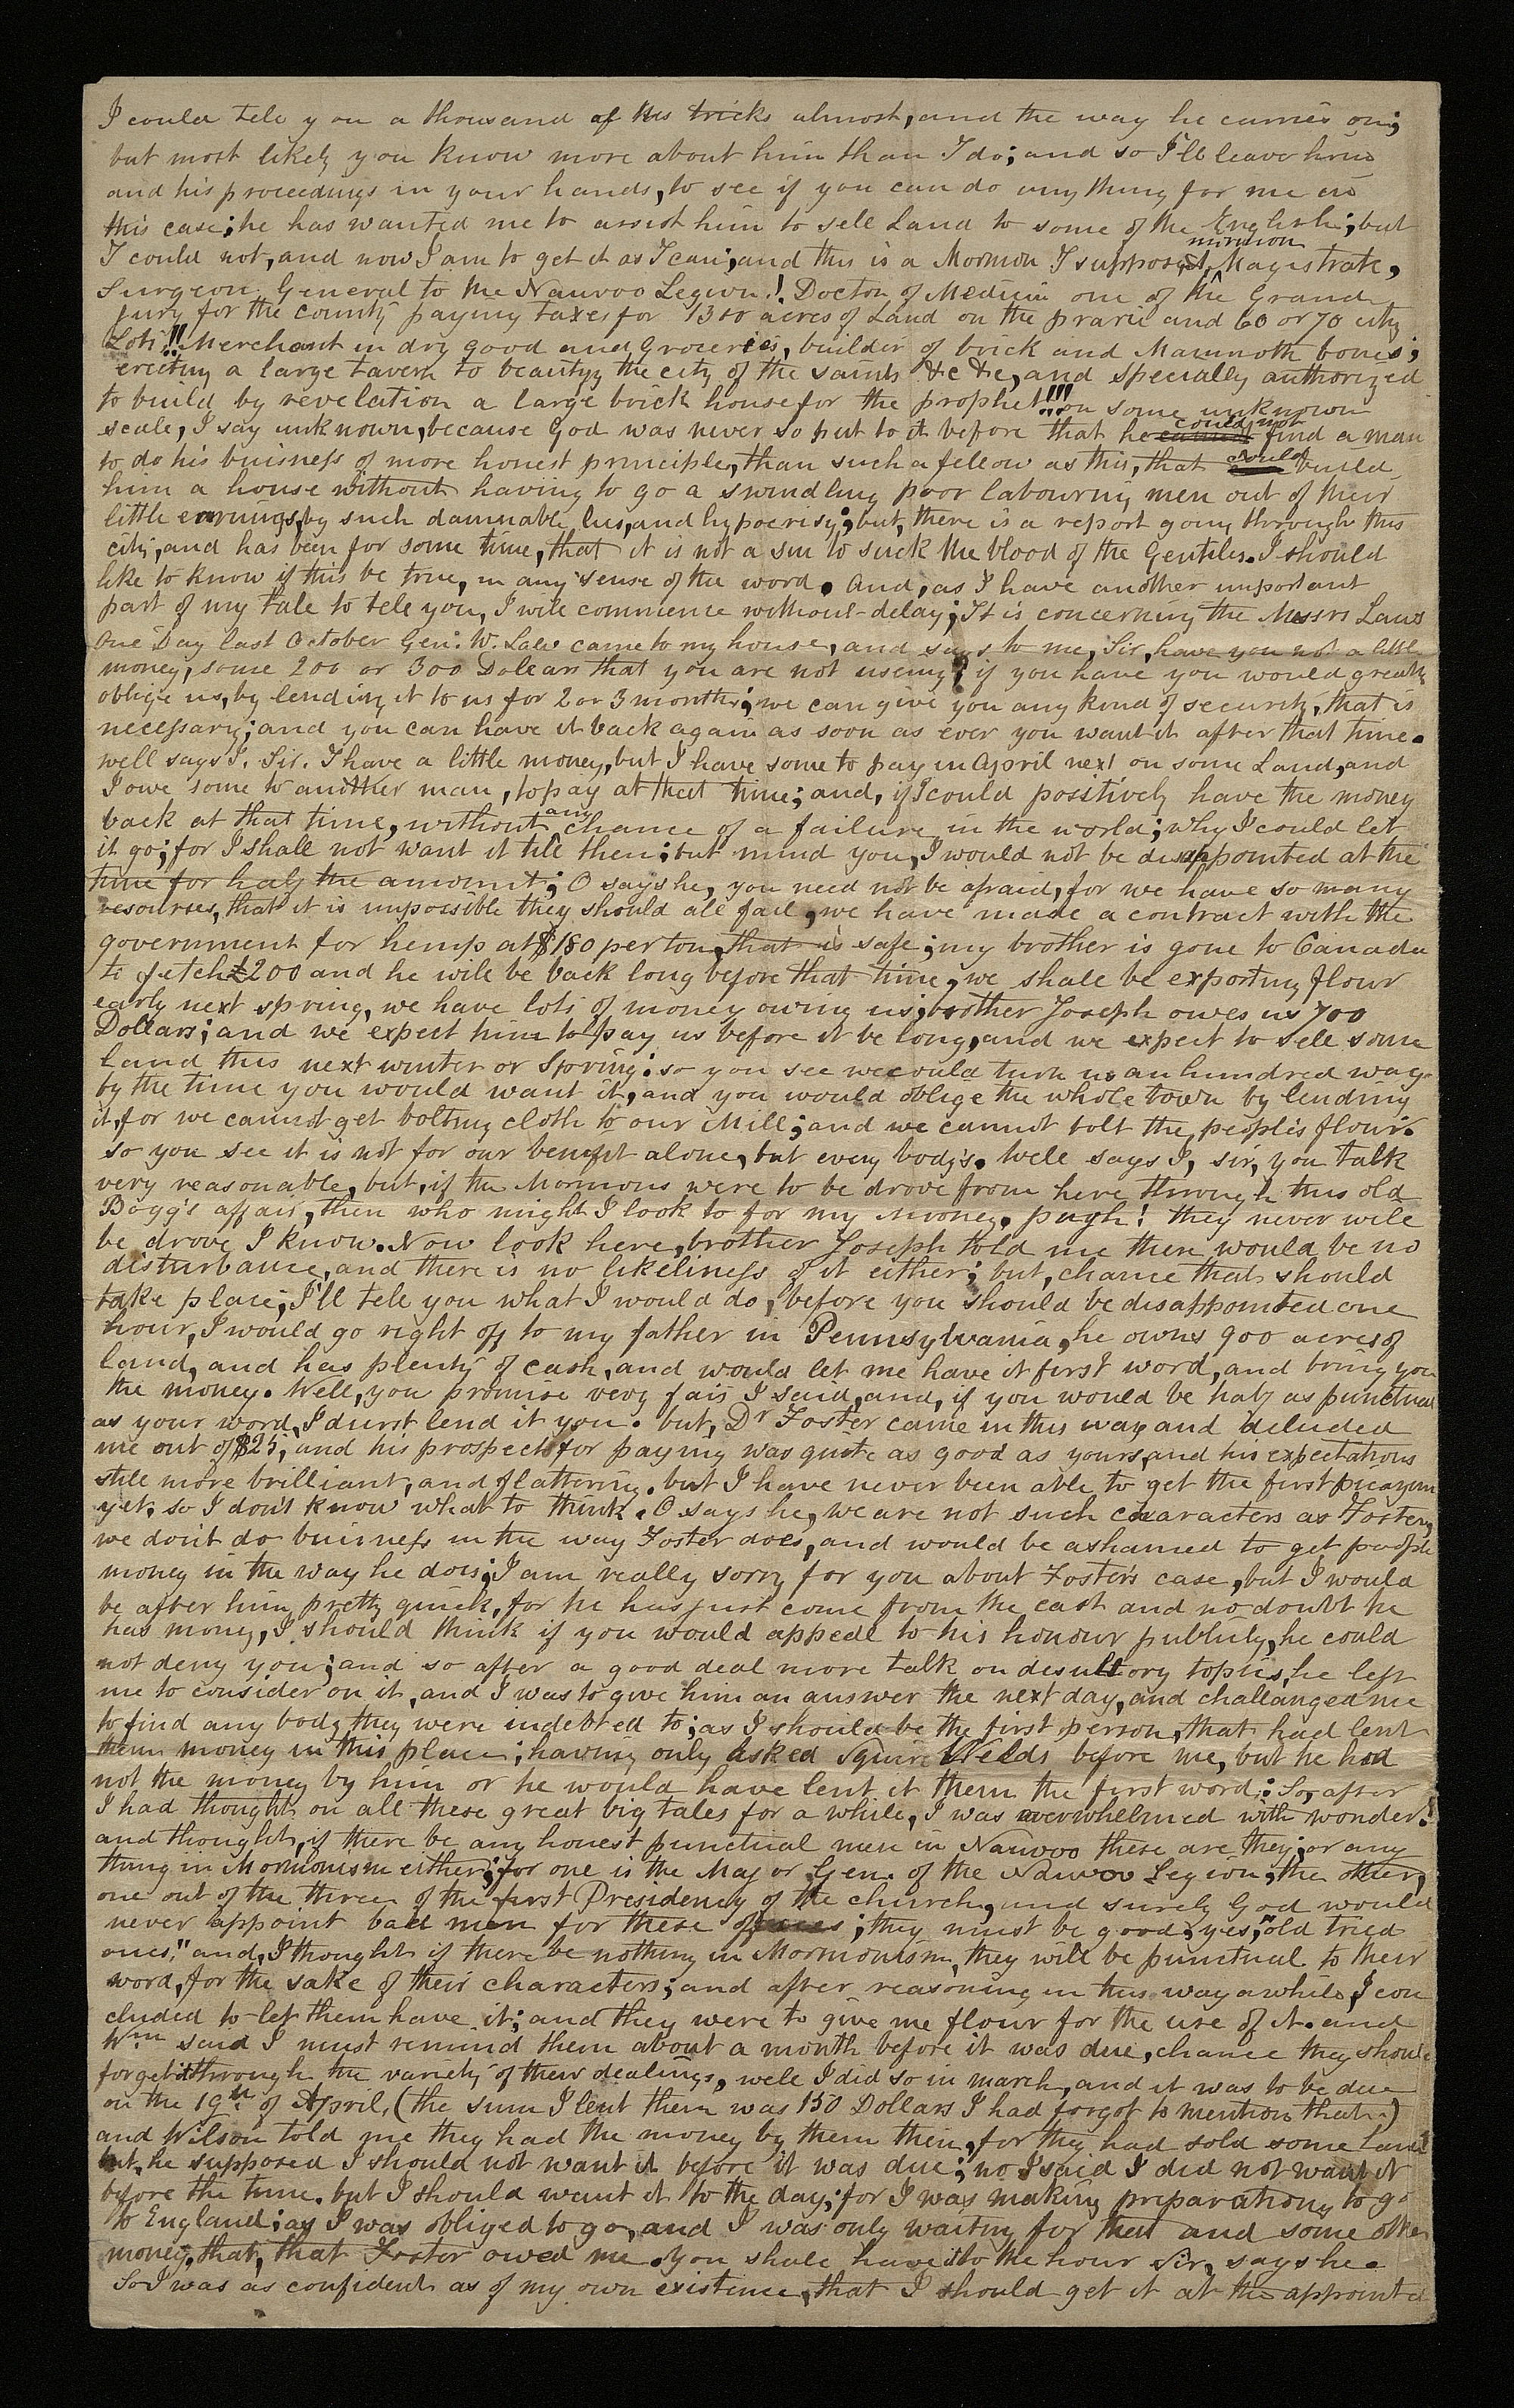 I could tele you a thousand of his tricks almost, and the way he carries on;
but most likely you know more about him than I do; and so I'll leave him
and his proceedings in your hands, to see if you can do any thing for me in
this case; he has wanted me to assist him to sell Land to some of the English; but
I could not, and now I am to get it as I can; and this is a Mormon I suppose, Magistrate,
Surgeon General to the Nauvoo Legion!. Doctor of Medicin one of the Grand
jury for the county paying taxes for 1300 acres of Land on the prarie and 60 or 70 city
Lots!! Merchant in dry good and Groceries, builder of brick and Mammoth bones;
erecting a large tavern to beautyy the city of the saints &c &c, and specially authorized
to build by revelation a large brick house for the prophet!!! on some unknown
scale, I say unknown, because God was never so put to it before that he could not find a man
to do his buisness of more honest principle, than such a fellow as this, that would build
him a house without having to go a swindling poor labouring men out of their
little earnings, by such damnable lies, and hypocrisy; but, there is a report going through this
city, and has been for some time, that it is not a sin to suck the blood of the Gentiles. I should
like to know if this be true, in any sense of the word. And, as I have another important
part of my tale to tele you, I will commence without delay; It is concerning the Messrs Laws
One Day last October Gen. W. Law came to my house, and says to me, Sir, have you not a little
money, some 200 or 300 Dollars that you are not useing? if you have you would greatly
oblige us, by lending it to us for 2 or 3 months; we can give you any kind of security, that is
necessary; and you can have it back again as soon as ever you want it after that time.
well says I. Sir. I have a little money, but I have some to pay in April next on some Land, and
I owe some to another man, to pay at that time; and, if I could positively have the money
back at that time, without any chance of a failure in the world; why I could let
it go; for I shall not want it till then; but mind you, I would not be disappointed at the
time for half the amount; O says he, you need not be afraid, for we have so many
resourses, that it is impossible they should all fail, we have made a contract with the
government for hemp at $180 per ton, that is safe; my brother is gone to Canada
to fetch £200 and he will be back long before that time, we shall be exporting flour
early next spring, we have lots of money owing us; brother Joseph owes us 700
Dollars; and we expect him to pay us before it be long, and we expect to sell some
Land this next winter or Spring: so you see we could turn us an hundred ways
by the time you would want it, and you would oblige the whole town by lending
it, for we cannot get bolting cloth to our Mill; and we cannot bolt the people's flour.
so you see it is not for our benefit alone, but every body's. Well says I, sir, you talk
very reasonable, but, if the Mormons were to be drove from here through this old
Bogg's affair, then who might I look to for my money. pugh! they never will
be drove I know. Now look here, brother Joseph told me there would be no
disturbance, and there is no likeliness of it either; but, chance that should
take place, I'll tele you what I would do, before you should be disappointed one
hour, I would go right off to my father in Pennsylvania, he owns 900 acres of
land, and has plenty of cash, and would let me have it first word, and bring you
the money. Well, you promise very fair I said, and, if you would be half as punctual
as your word, I durst lend it you. but, Dr Foster came in this way and deluded
me out of $25, and his prospects for paying was quite as good as yours, and his expectations
still more brilliant, and flattering. but I have never been able to get the first picayune
yet. so I don't know what to think. O says he, we are not such characters as Foster,
we don't do buisness in the way Foster does, and would be ashamed to get people's
money in the way he does; I am really sorry for you about Foster's case, but I would
be after him pretty quick, for he has just come from the east and no doubt he
has money, I should think if you would appeal to his honour publicly, he could
not deny you; and so after a good deal more talk on desultory topics, he left
me to consider on it, and I was to give him an answer the next day, and challanged me
to find any body they were indebted to; as I should be the first person, that had lent
them money in this place; having only asked Squire Wells before me, but he had
not the money by him or he would have lent it them the first word: So, after
I had thought on all these great big tales for a while, I was overwhelmed with wonder!
and thought, if there be any honest punctual men in Nauvoo these are they; or any
thing in Mormonism either; for one is the Major Gen. of the Nauvoo Legion, the other,
one out of the three of the first Presidency of the church, and surely God would
never appoint bad men for these offices; they must be good, yes, "old tried
ones," and, I thought if there be nothing in Mormonism, they will be punctual to their
word, for the sake of their characters; and after reasoning in this way awhile, I con
cluded to let them have it; and they were to give me flour for the use of it. and
Wm said I must remind them about a month before it was due, chance they should
forget it through the variety of their dealings, wele I did so in march, and it was to be due
on the 19th of April, (the sum I lent them was 150 Dollars I had forgot to mention that.)
and Wilson told me they had the money by them then, for they had sold some land
but, he supposed I should not want it before it was due; no I said I did not want it
before the time. but I should want it to the day; for I was making preparations to go
to England; as I was obliged to go, and I was only waiting for that and some other
money, that, that Foster owed me. You shall have it to the hour Sir, says he.
So I was as confident as of my own existence, that I should get it at the appointed